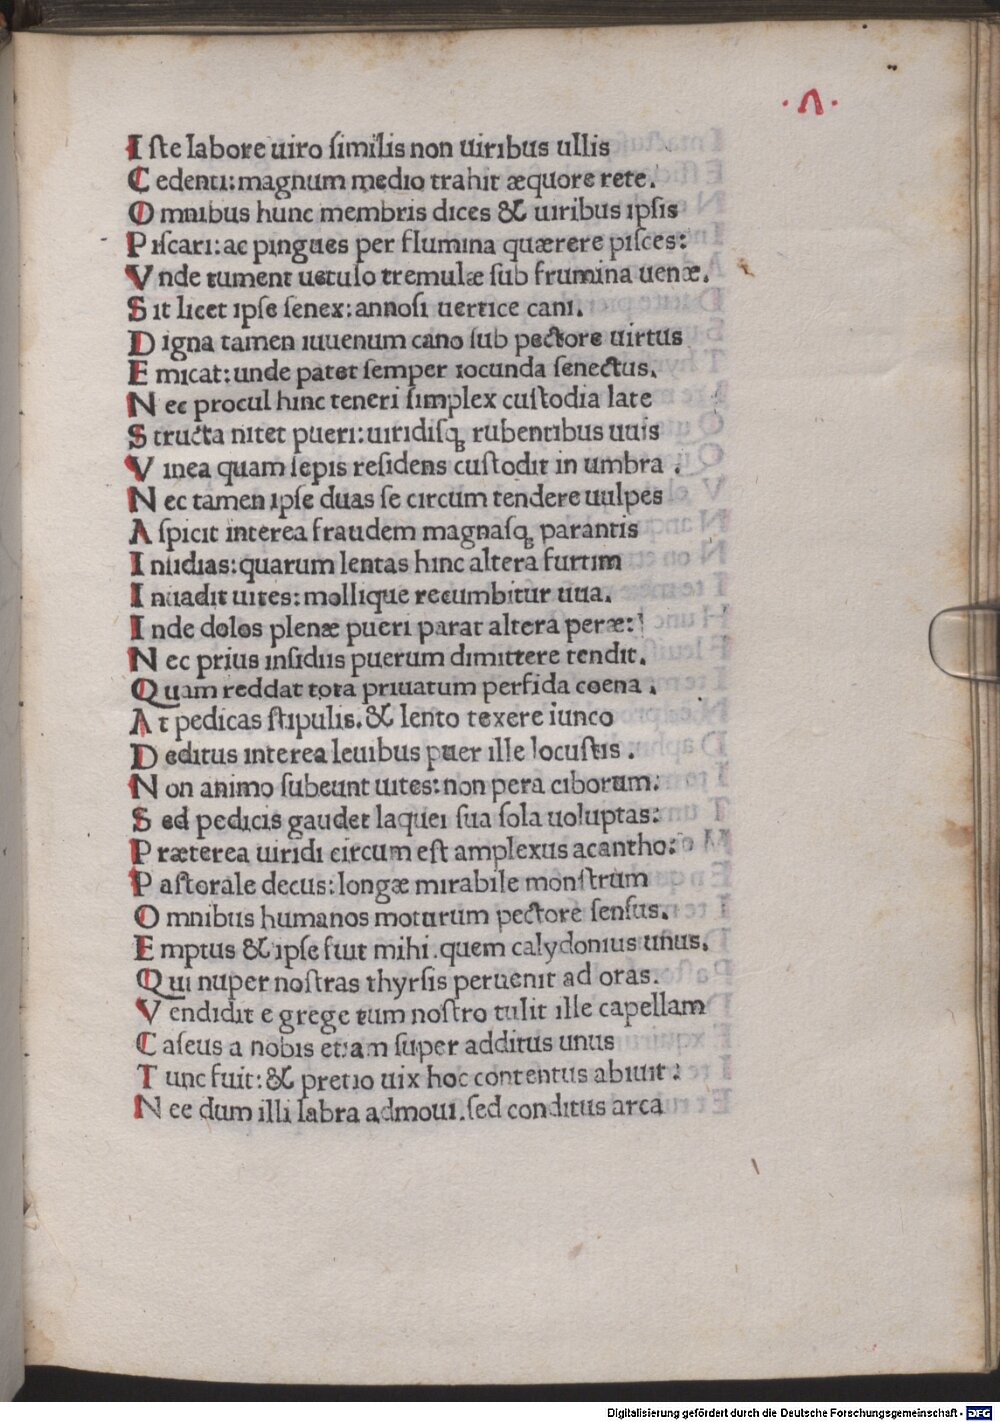 ·Λ·
I ste labore uiro ſimilis non uiribus ullis
C edenti: magnum medio trahit æquore rete.
O mnibus hunc membris dices & uiribus ipſis
P iſcari: ac pingues per flumina quærere piſces:
V nde tument uetulo tremulæ ſub frumina uenæ.
S it licet ipſe ſenex: annoſi uertice cani.
D igna tamen iuuenum cano ſub pectore uirtus
E micat: unde patet ſemper iocunda ſenectus.
N ec procul hinc teneri ſimplex cuſtodia late
S tructa nitet pueri: uiridiſqꝫ rubentibus uuis
V inea quam ſepis reſidens cuſtodit in umbra .
N ec tamen ipſe duas ſe circum tendere uulpes
A ſpicit interea fraudem magnaſqꝫ parantis
I nſidias: quarum lentas hinc altera furtim
I nuadit uites: mollique recumbitur uua.
I nde dolos plenæ pueri parat altera peræ:
N ec prius inſidiis puerum dimittere tendit.
Q uam reddat tota priuatum perfida coena .
A t pedicas ſtipulis. & lento texere iunco
D editus interea leuibus puer ille locuſtis .
N on animo ſubeunt uites: non pera ciborum:
S ed pedicis gaudet laquei ſua ſola uoluptas:
P ræterea uiridi circum eſt amplexus acantho:
P aſtorale decus: longæ mirabile monſtrum
O mnibus humanos moturum pectore ſenſus.
E mptus & ipſe fuit mihi. quem calydonius unus.
Q ui nuper noſtras thyrſis peruenit ad oras.
V endidit e grege tum noſtro tulit ille capellam
C aſeus a nobis etiam ſuper additus unus
T unc fuit: & pretio uix hoc contentus abiuit :
N ec dum illi labra admoui. ſed conditus arca
Digitalisierung gefördert durch die Deutsche Forschungsgemeinschaft - DFG